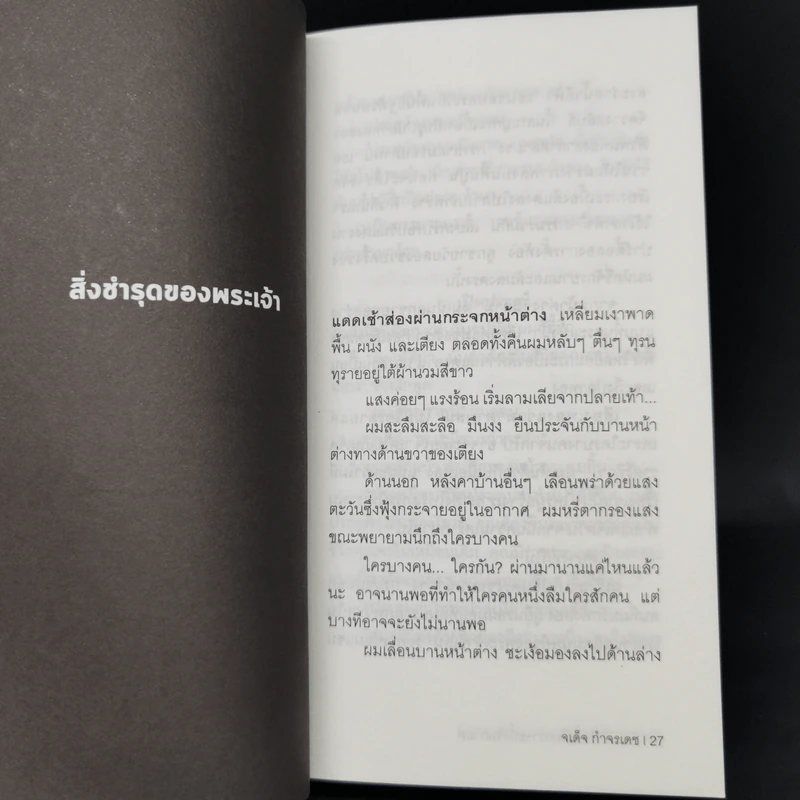 สิ่งชำรุดของพระเจ้า
แดดเช้าส่องผ่านกระจกหน้าต่าง เหลี่ยมเงาพาด
พื้น ผนัง และเตียง ตลอดทั้งคืนผมหลับๆ ตื่นๆ ทุรน
ทุรายอยู่ใต้ผ้านวมสีขาว
แสงค่อยๆ แรงร้อน เริ่มลามเลียจากปลายเท้า...
ผมสะลึมสะลือ มึนงง ยืนประจันกับบานหน้า
ต่างทางด้านขวาของเตียง
ด้านนอก หลังคาบ้านอื่นๆ เลือนพร่าด้วยแสง
ตะวันซึ่งฟุ้งกระจายอยู่ในอากาศ ผมหรี่ตากรองแสง
ขณะพยายามนึกถึงใครบางคน
ใครบางคน... ใครกัน? ผ่านมานานแค่ไหนแล้ว
นะ อาจนานพอที่ทำให้ใครคนหนึ่งลืมใครสักคน แต่
บางทีอาจจะยังไม่นานพอ
ผมเลื่อนบานหน้าต่าง ชะเง้อมองลงไปด้านล่าง
จเด็จ กำจรเดช | 27